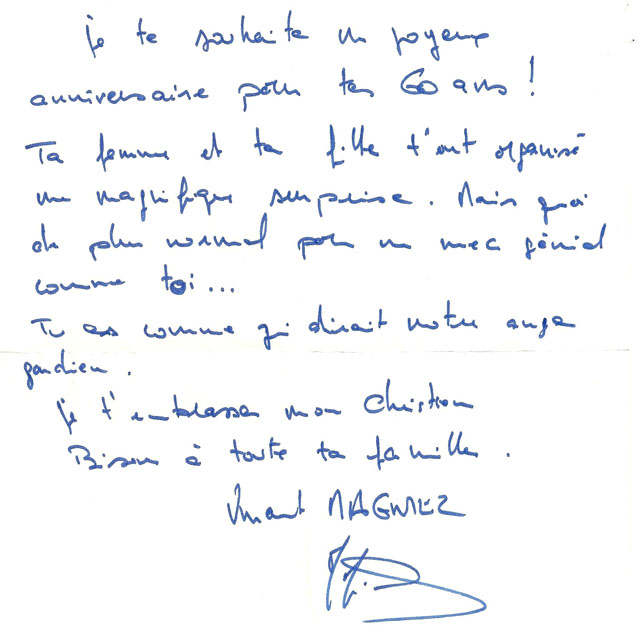 je te souhaite un joyeux
anniversaire pour tes 60 ans !
Ta femme et ta fille t'ont organisé
une magnifique surprise. Mais quoi
de plus normal pour un mec génial
comme toi...
Tu es comme qui dirait notre ange
gardien.
je t'embrasse mon Christian
Bisous à toute ta famille.
Vincent MAGNIEZ